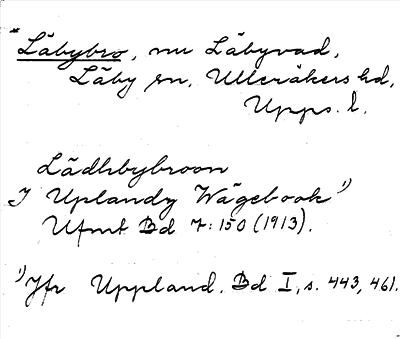 *Läbybro, nu Läbyvad,
Läby sn, Ulleråkers hd,
Upps. l.
Lädhbybroon
I Uplandz Wägebook 1)
Ufmt Bd 7:150 (1913).
1) Jfr Uppland. Bd I, s. 443, 461.